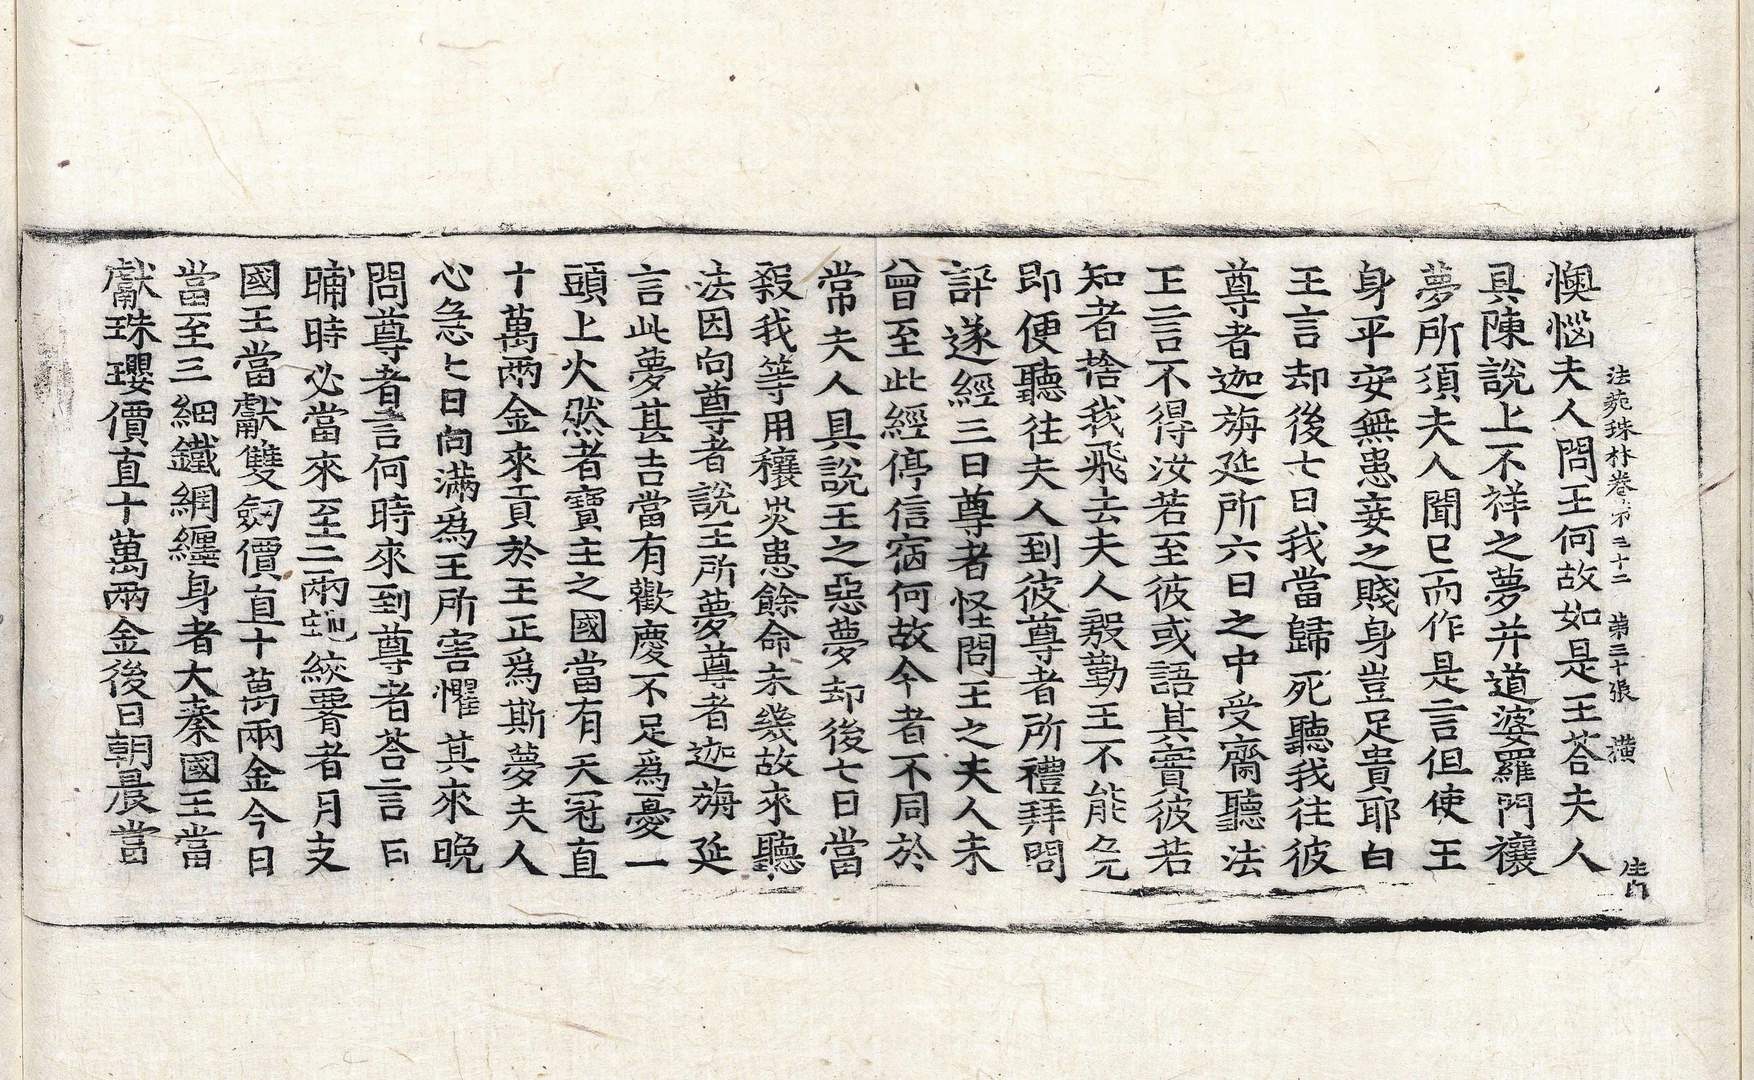 法苑珠林卷第三十二　第三十張　橫
懊惱夫人問王何故如是王荅夫人
具陳說上不祥之夢幷道婆羅門禳
夢所須夫人聞已而作是言但使王
身平安無患妾之賤身豈足貴耶白
王言却後七日我當歸死聽我往彼
尊者迦旃延所六日之中受齋聽法
王言不得汝若至彼或語其實彼若
知者捨我飛去夫人慇勤王不能免
即便聽往夫人到彼尊者所禮拜問
訊遂經三日尊者怪問王之夫人未
曾至此經停信宿何故今者不同於
常夫人具說王之惡夢却後七日當
殺我等用穰災患餘命未幾故來聽
法因向尊者說王所夢尊者迦旃延
言此夢甚吉當有歡慶不足爲憂一
頭上火然者寶主之國當有天冠直
十萬兩金來貢於王正爲斯夢夫人
心急七日向滿爲王所害懼其來晚
問尊者言何時來到尊者荅言今日
晡時必當來至二兩虵絞署者月支
國王當獻雙劒價直十萬兩金今日
當至三細鐵網纏身者大秦國王當
獻珠瓔價直十萬兩金後日朝晨當